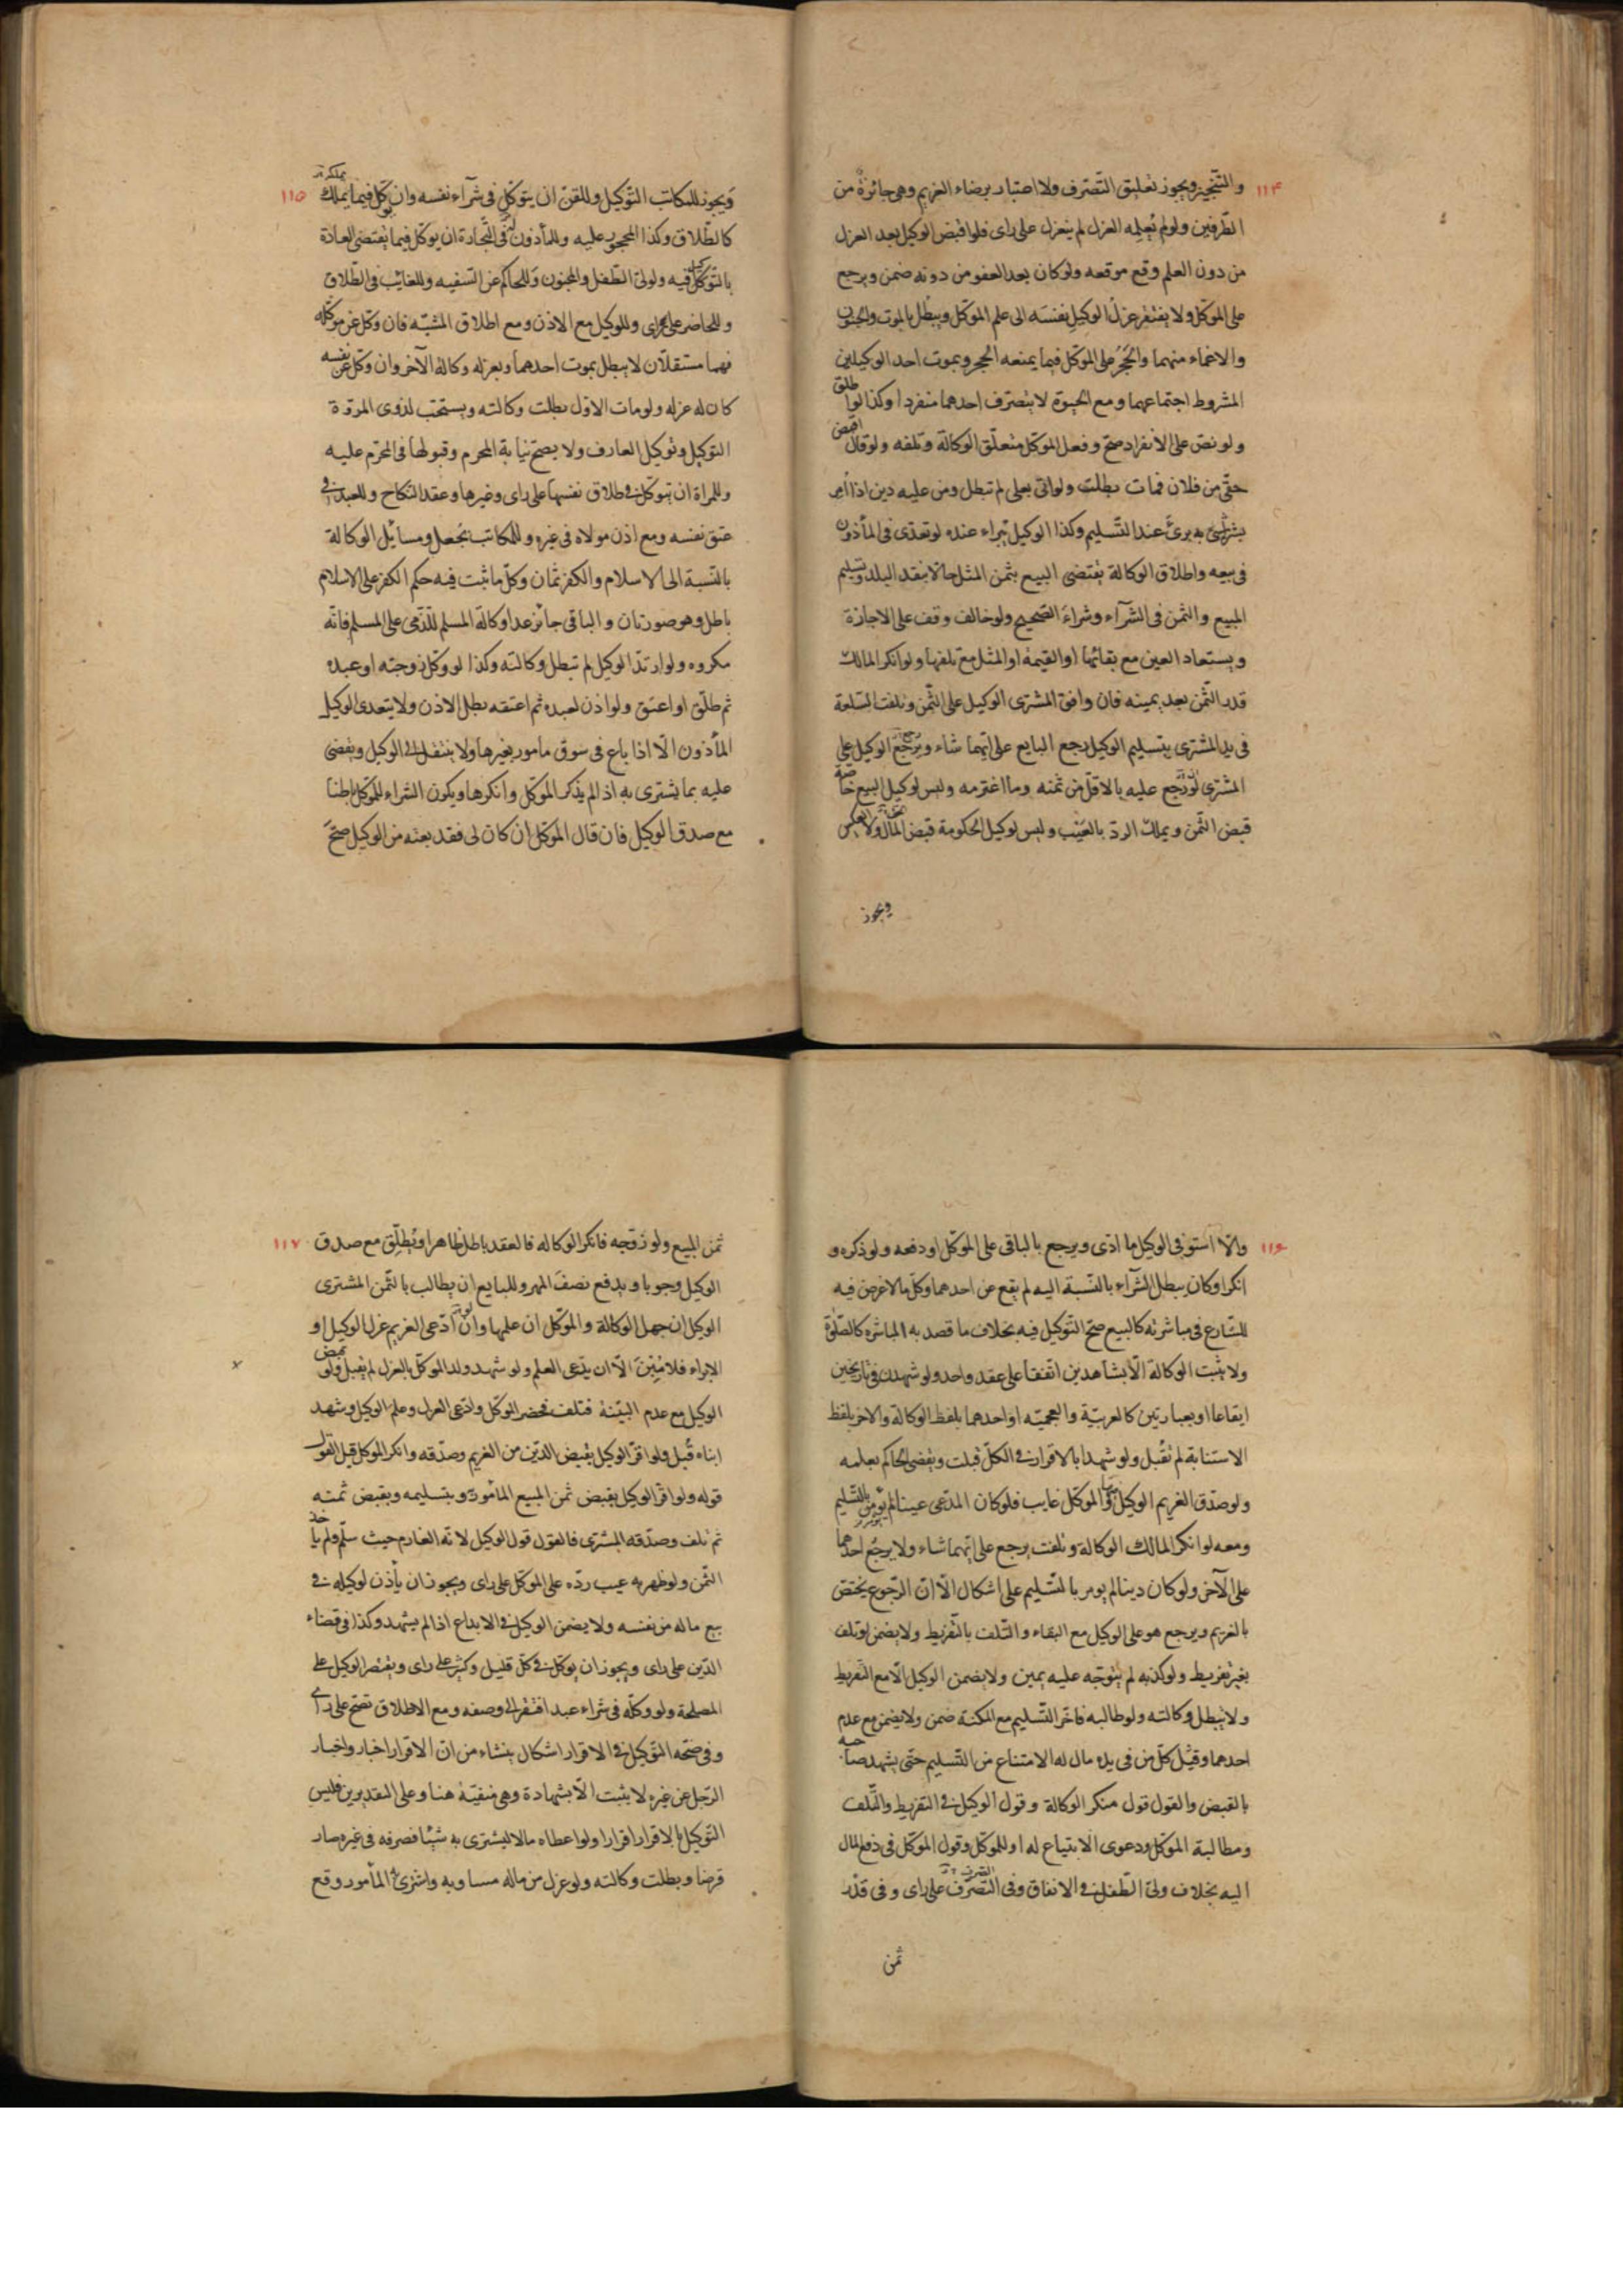 ١١۴
والتنجيز ويجوز تعليق التّصرّف ولا اعتبار برضاء الغريم وهى جائزة من
الطّرفين ولو لم يُعلِمه العزل لم ينعزل على راى فلو اقبض الوكيل بعد العزل
من دون العلم وقع موقعه ولو كان بعد العفو من دونه ضمن ويرجع
على الموكّل ولا يفتقر عزل الوكيل نفسَه الى علم الموكّل ويبطل بالموت والجنون
والاغماء منهما والحَجَرُ على الموكّل فيما يمنعه الحجر وبموت احد الوكيلين
المشروط اجتماعهما ومع الحيوة لا يتصرّف احدهما منفردا وكذا لو اطلق
ولو نصّ على الانفراد صحّ وفعل الموكّل متعلّق الوكالة وتلفه ولو قال اقبض
حقّى من فلان فمات بطلت ولو اتى بعلى لم تبطل ومن عليه دين اذا امر
بشراشئ به برئ عند التّسليم وكذا الوكيل يبراء عنده لو تعدّى فى المأذون
فى بيعه واطلاق الوكالة يقتضى البيع بثمن المثل حالّا بنقد البلد وتسليم
المبيع والثمن فى الشرآء وشراء الصحيح ولو خالف وقف على الاجازة
ويستعاد العين مع بقائها او القيمة او المثل مع تلفها ولو انكر المالك
قدر الثّمن بعد يمينه فان وافق المشترى الوكيل على الثّمن وتلفت السّلعة
فى يد المشترى بتسليم الوكيل رجع البايع على ايّهما شاء ويرجع الوكيل على
المشترى لو رجع عليه بالاقلّ من ثمنه وما اغترمه وليس لوكيل البيع خاصّة
قبض الثّمن ويملك الردّ بالعَيْب وليس لوكيل الحكومة قبض المال ولا بالعكس
ويجوز
١١٥
وَيجوز للمكاتب التّوكيل وللقنّ ان يتوكّل فى شرآء نفسه وان يوكّل فيما يملك
كالطّلاق وكذا المحجور عليه وللمأذون له فى التّجارة ان يوكّل فيما يقتضى العادة
بالتوكيل فيه ولولىّ الطّفل والمجنون وَللحاكم عن السّفيه وللغايب فى الطّلاق
وللحاضر على راى وللوكيل مع الاذن ومع اطلاق المشيّه فان وكّل عن موكّله
فهما مستقلّان لا يبطل بموت احدهما وبعزله وكالة الآخر وان وكّل عن نفسه
كان له عزله ولو مات الاوّل بطلت وكالته ويستحبّ لذوى المروّة
التوكيل وتوكيل العارف ولا يصحّ نيابة المحرم وقبولها فى المحرّم عليه
وللمراة ان يتوكّل فى طلاق نفسها على راى وغيرها وعقد النّكاح وللعبد فى
عتق نفسه ومع اذن مولاه فى غيره وللمكاتب بجُعل ومسائل الوكالة
بالنّسبة الى الاسلام والكفر ثمان وكلّ ما ثبت فيه حكم الكفر على الاسلام
باطل وهو صورتان والباقى جائز عدا وكالة المسلم للّذّمى على المسلم فانّه
مكروه ولو ارتدّ الوكيل لم تبطل وكالته وكذا لو وكّل زوجته او عبده
ثم طلّق او اعتق ولو اذن لعبده ثم اعتقه بطل الاذن ولا يتعدى الوكيل
المأذون الّا اذا باع فى سوق مامور بغيرها ولا ينتقل الى الوكيل ويقضى
عليه بما يشترى به اذ لم يذكر الموكّل وانكرها ويكون الشراء للموكّل باطنا
مع صدق الوكيل فان قال الموكّل ان كان لى فقد بعته من الوكيل صحّ
١١۶
والّا استوفى الوكيل ما ادّى ويرجع بالباقى على الموكّل او دفعه ولو ذكره و
انكر او كان يبطل الشرآء بالنّسبة اليه لم يقع عن احدهما وكلّ ما لا غرض فيه
للشّارع فى مباشرته كالبيع صحّ التّوكيل فيه بخلاف ما قصد به المباشرة كالصّلوة
ولا يثبت الوكالة الّا بشاهدين اتّفقا على عقد واحد ولو شهدا فى تاريخين
ايقاعا او بعبارتين كالعربيّة والعجميّه او احدهما بلفظ الوكالة والاخر بلفظ
الاستنابة لم تُقبل ولو شهدا بالاقرار فى الكلّ قبلت ويقضى الحاكم بعلمه
ولو صدّق الغريم الوكيل والموكّل غايب فلو كان المدّعى عينا لم يؤمر بالتّسليم
ومعه لو انكر المالك الوكالة وتلفت يرجع على ايّهما شاء ولا يرجع احدهما
على الآخر ولو كان دينا لم يومر بالتّسليم على اشكال الّا انّ الرّجوع يختصّ
بالغريم ويرجع هو على الوكيل مع البقاء والتّلف بالتّفريط ولا يضمن لو تلف
بغير تفريط ولو كذّبه لم يتوجّه عليه يمين ولا يضمن الوكيل الّا مع التّفريط
ولا تبطل وكالته ولو طالبه فاخّر التّسليم مع المكنة ضمن ولا يضمن مع عدم
احدهما وقيل كلّ من فى يده مال له الامتناع من التّسليم حتّى يشهد صاحبه
بالقبض والقول قول منكر الوكالة وقول الوكيل فى التفريط والتّلف
ومطالبة الموكّل ودعوى الابتياع له او للموكّل وقول الموكّل فى دفع المال
اليه بخلاف ولىّ الطّفل فى الانفاق وفى التّصرّف على راى وفى قَدْر
ثمن
١١٧
ثمن المبيع ولو زوّجه فانكر الوكالة فالعقد باطل ظاهرا ويُطلّق مع صدق
الوكيل وجوبا ويدفع نصفَ المهر وللبايع ان يطالب بالثّمن المشترى
الوكيل ان جهل الوكالة والموكّل ان علمها وان ادّعى الغريم عزل الوكيل او
الابراء فلا يمين الّا ان يدّعى العلم ولو شهد ولدا الموكّل بالعزل لم يقبل ولو قبض
الوكيل مع عدم البيّنة فتلف فحضر الموكّل وادّعى العزل وعلم الوكيل وشهد
ابناه قُبل ولو اقرّ الوكيل بقبض الدّين من الغريم وصدّقه وانكر الموكّل قبل القول
قوله ولو اقرّ الوكيل بقبض ثمن المبيع المأمور وبتسليمه وبقبض ثمنه
ثم تلف وصدّقه المشترى فالقول قول الوكيل لانّه الغارم حيث سلّم ولم ياخذ
الثّمن ولو ظهر به عيب ردّه على الموكّل على راى ويجوز ان يأذن لوكيله فى
بيع ماله من نفسه ولا يضمن الوكيل فى الايداع اذا لم يشهد وكذا فى قضاء
الدّين على راى ويجوز ان يوكّل فى كلّ قليل وكثير على راى ويقتصر الوكيل على
المصلحة ولو وكّله فى شراء عبد افتقر الى وصفه ومع الاطلاق تصّح على راى
وفى صحّة التّوكيل فى الاقرار اشكال ينشاء من انّ الاقرار اخبار واخبار
الرّجل عن غيره لا يثبت الّا بشهادة وهى منفيّة هنا وعلى التقديرين فليس
التّوكيل بالاقرار اقرارا ولو اعطاه مالا ليشترى به شيئا فصرفه فى غيره صار
قرضا وبطلت وكالته ولو عزل من ماله مساويه واشترى المأمور وقع